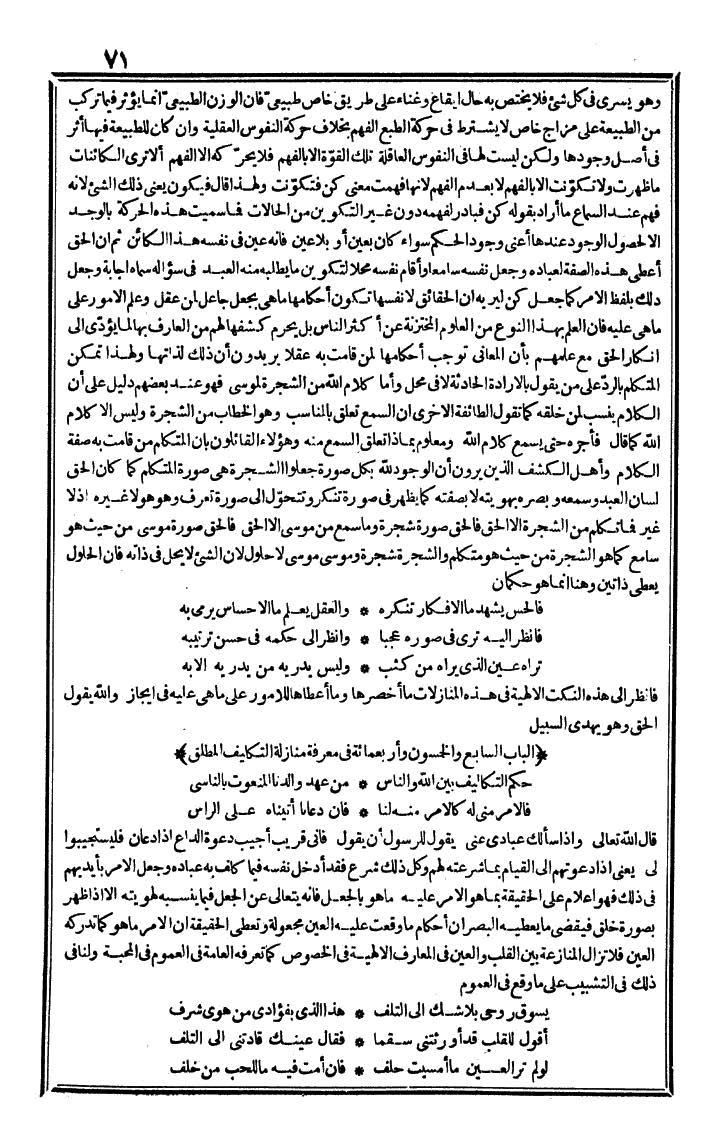 ٧١
وهو يسرى فى كل شئ فلا يختص به حال ايقاع وغناء على طريق خاص طبيعى فان الوزن الطبيعى انما يؤثر فيما تركب
من الطبيعة على مزاج خاص لا يشترط فى حركة الطبع الفهم بخلاف حركة النفوس العقلية وان كان للطبيعة فيها أثر
فى أصل وجودها ولكن ليست لها فى النفوس العاقلة تلك القوّة الا بالفهم فلا يحرّكه الا الفهم ألا ترى الكائنات
ما ظهرت ولا تكوّنت الا بالفهم لا بعدم الفهم لانها فهمت معنى كن فتكوّنت ولهذا قال فيكون يعنى ذلك الشئ لانه
فهم عند السماع ما أراد بقوله كن فبادر لفهمه دون غير التكوين من الحالات فما سميت هذه الحركة بالوجد
الا لحصول الوجود عندها أعنى وجود الحكم سواء كان بعين أو بلاعين فانه عين فى نفسه هذا الكائن ثم ان الحق
أعطى هذه الصفة لعباده وجعل نفسه سامعا وأقام نفسه محلا لتكوين ما يطلبه منه العبد فى سؤاله سماه اجابة وجعل
ذلك بلفظ الامر كما جعل كن ليريه ان الحقائق لانفسها تكون أحكامها ما هى بجعل جاعل لمن عقل وعلم الامور على
ماهى عليه فان العلم بهذا النوع من العلوم المختزنة عن أكثر الناس بل يحرم كشفها لهم من العارف بها لما يؤدّى الى
انكار الحق مع علمهم بأن المعانى توجب أحكامها لمن قامت به عقلا يريدون أن ذلك لذاتها ولهذا تمكن
المتكلم بالردّ على من يقول بالارادة الحادثة لا فى محل وأما كلام الله من الشجرة لموسى فهو عند بعضهم دليل على أن
الكلام ينسب لمن خلقه كما تقول الطائفة الاخرى ان السمع تعلق بالمناسب وهو الخطاب من الشجرة وليس الا كلام
الله كما قال فأجره حتى يسمع كلام الله ومعلوم بماذا تعلق السمع منه وهؤلاء القائلون بان المتكلم من قامت به صفة
الكلام وأهل الكشف الذين يرون أن الوجود لله بكل صورة جعلوا الشجرة هى صورة المتكلم كما كان الحق
لسان العبد وسمعه وبصره بهويته لا بصفته كما يظهر فى صورة تنكر وتتحوّل الى صورة تعرف وهو هو لا غيره اذ لا
غير فما تكلم من الشجرة الا الحق فالحق صورة شجرة وما سمع من موسى الا الحق فالحق صورة موسى من حيث هو
سامع كما هو الشجرة من حيث هو متكلم والشجرة شجرة وموسى موسى لا حلول لان الشئ لا يحل فى ذاته فان الحلول
يعطى ذاتين وهنا انما هو حكمان
فالحس يشهد ما الافكار تنكره * والعقل يعلم ما الاحساس يرمى به
فانظر اليه ترى فى صوره عجبا * وانظر الى حكمه فى حسن ترتيبه
تراه عين الذى يراه من كثب * وليس يدريه من يدريه الا به
فانظر الى هذه النكت الالهية فى هذه المنازلات ما أخصرها وما أعطاها للامور على ماهى عليه فى ايجاز والله يقول
الحق وهو يهدى السبيل
﴿الباب السابع والخمسون وأربعمائة فى معرفة منازلة التكليف المطلق﴾
حكم التكاليف بين الله والناس * من عهد والدنا المنعوت بالناسى
فالامر منى له كالامر منه لنا * فان دعانا أتيناه على الراس
قال الله تعالى واذا سألك عبادى عنى يقول للرسول أن يقول فانى قريب أجيب دعوة الداع اذا دعان فليستجيبوا
لى يعنى اذا دعوتهم الى القيام بما شرعته لهم وكل ذلك شرع فقد أدخل نفسه فيما كلف به عباده وجعل الامر بأيديهم
فى ذلك فهو اعلام على الحقيقة بما هو الامر عليه ما هو بالجعل فانه يتعالى عن الجعل فيما ينسبه لهويته الا اذا ظهر
بصورة خلق فيقضى ما يعطيه البصر ان أحكام ما وقعت عليه العين مجعولة وتعطى الحقيقة ان الامر ما هو كما تدركه
العين فلا تزال المنازعة بين القلب والعين فى المعارف الالهية فى الخصوص كما تعرفه العامة فى العموم فى المحبة ولنا فى
ذلك فى التشبيب على ما وقع فى العموم
يسوق روحى بلا شك الى التلف * هذا الذى بفؤادى من هوى شرف
أقول للقلب قد أورثتنى سقما * فقال عينك قادتنى الى التلف
لو لم تر العين ما أمسيت حلف * فان أمت فيه ما للحب من خلف